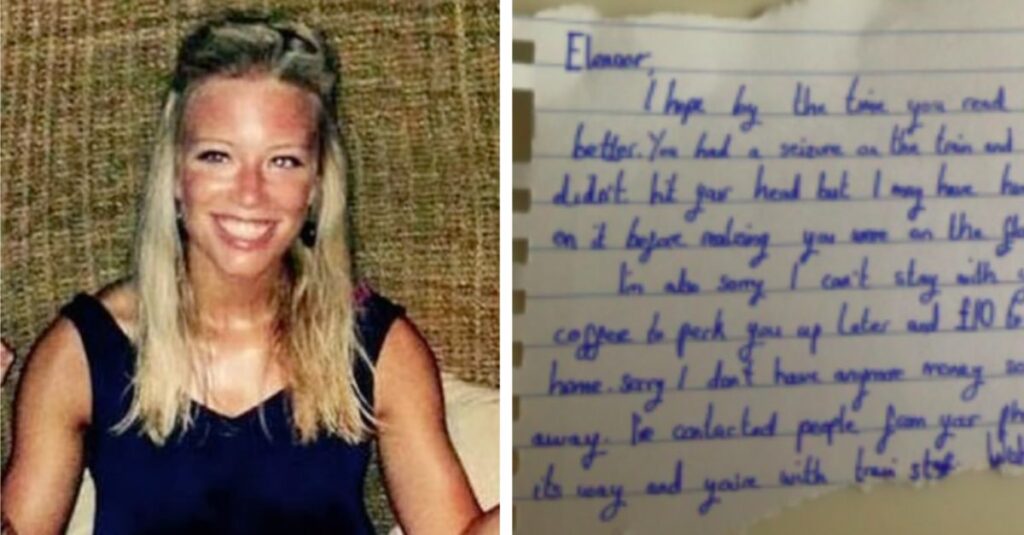 Eleanor,
I hope by the time you read
better. You had a seizure on the train and
didn't hit your head but I may have
on it before realising you were on the
I'm also sorry I can't stay with
coffee to perk you up later and £10
home. Sorry I don't have anymore money
away. I've contacted people from your
its way and you're with train staff